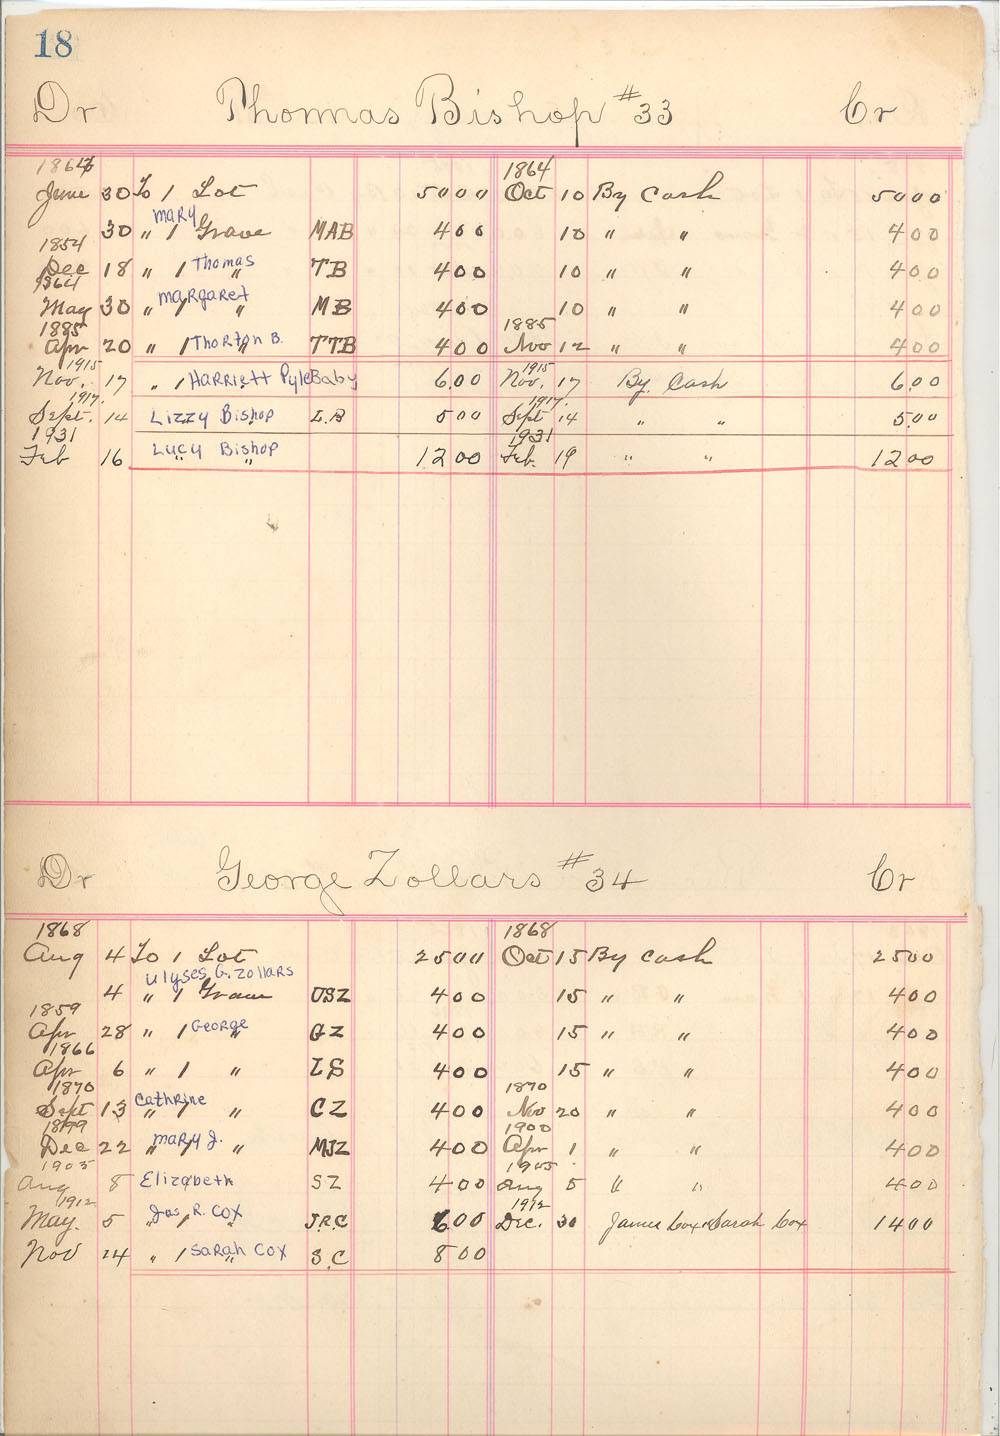 18
Dr Thomas Bishop #33 Cr
1864 1864
June 30 To 1 Lot 50 00 Oct 10 By Cash 50 00
Mary
30 " 1 Grave MAB 4 00 10 " " 4 00
1854
Dec 18 " 1 Thomas " TB 4 00 10 " " 4 00
1864
May 30 " 1 Margaret " MB 4 00 10 " " 4 00
1885 1885
Apr 20 " 1 Thorton B. " TTB 4 00 Nov 12 " " 4 00
1915 1915
Nov. 17 " 1 Harriett Pyle Baby 6.00 Nov. 17 By Cash 6.00
1917. 1917.
Sept. 14 Lizzy Bishop L.B 5 00 Sept 14 " " 5.00
1931 1931
Feb 16 Lucy Bishop 12 00 Feb. 19 " " 12 00
Dr George Zollars #34 Cr
1868 1868
Aug 4 To 1 Lot 25 00 Oct 15 By Cash 25 00
Ulyses G. Zollars
4 " 1 Grave USZ 4 00 15 " " 4 00
1859
Apr 28 " 1 George " GZ 4 00 15 " " 4 00
1866
Apr 6 " 1 " LS 4 00 15 " " 4 00
1870 1870
Sept 13 Cathrine " 1 " CZ 4 00 Nov 20 " " 4 00
1899 1900
Dec 22 " Mary J. " MJZ 4 00 Apr 1 " " 4 00
1905 1905
Aug 8 Elizabeth SZ 4 00 Aug 5 " " 4 00
1912 1912
May. 5 " 1 Jas. R. Cox " J.R.C 6 00 Dec. 30 James Cox & Sarah Cox 14 00
Nov 24 " 1 Sarah Cox " S.C 8 00